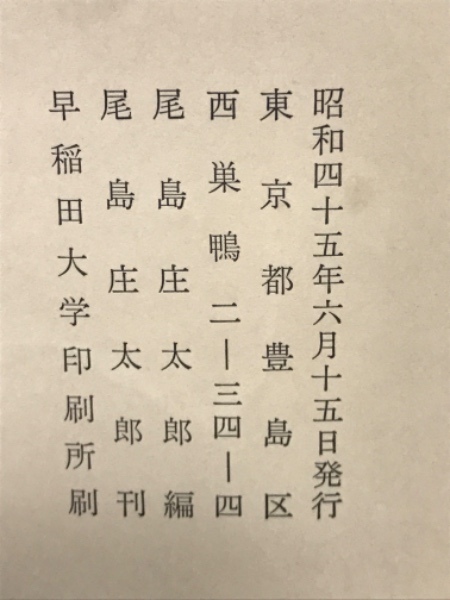 昭和四十五年六月十五日発行
東京都豊島区
西巣鴨二―三四―四
尾島庄太郎編
尾島庄太郎刊
早稲田大学印刷所刷